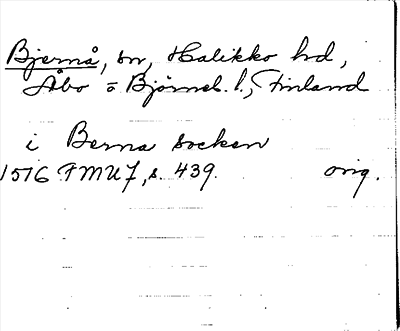 Bjernå, sn, Halikko hd,
Åbo o Björneb. l., Finland
i Berna socken
1516 FMU 7, s. 439. orig.